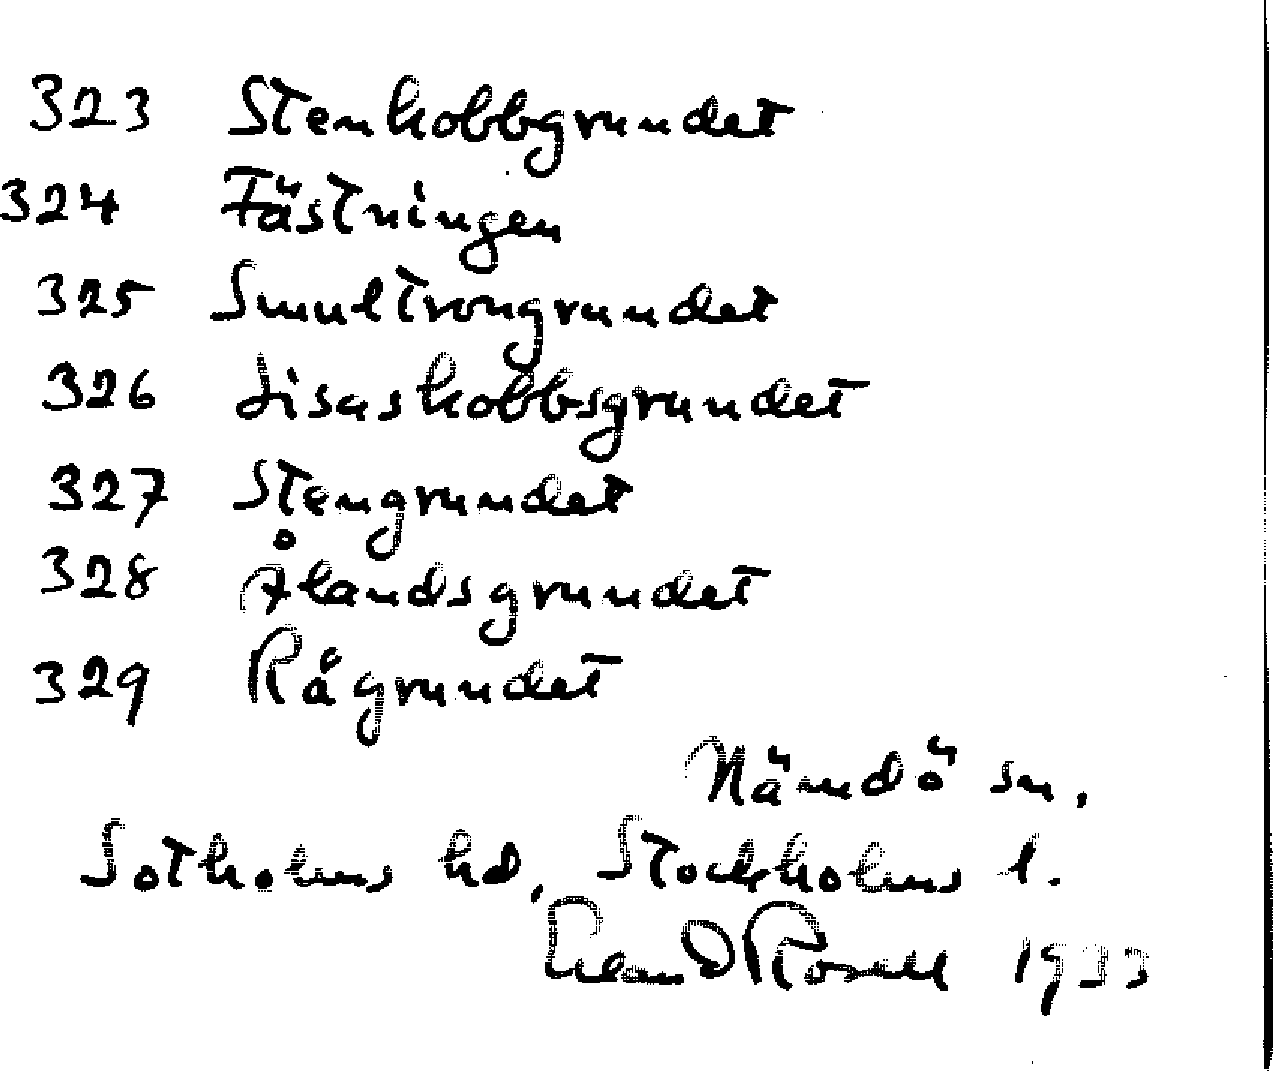 323 Stenkobbgrundet
324 Fästningen
325 Smultrongrundet
326 Lisaskobbsgrundet
327 Stengrundet
328 Ålandsgrundet
329 Rågrundet
Nämdö sn.
Sotholms hd, Stockholms l.
Rosell 1933